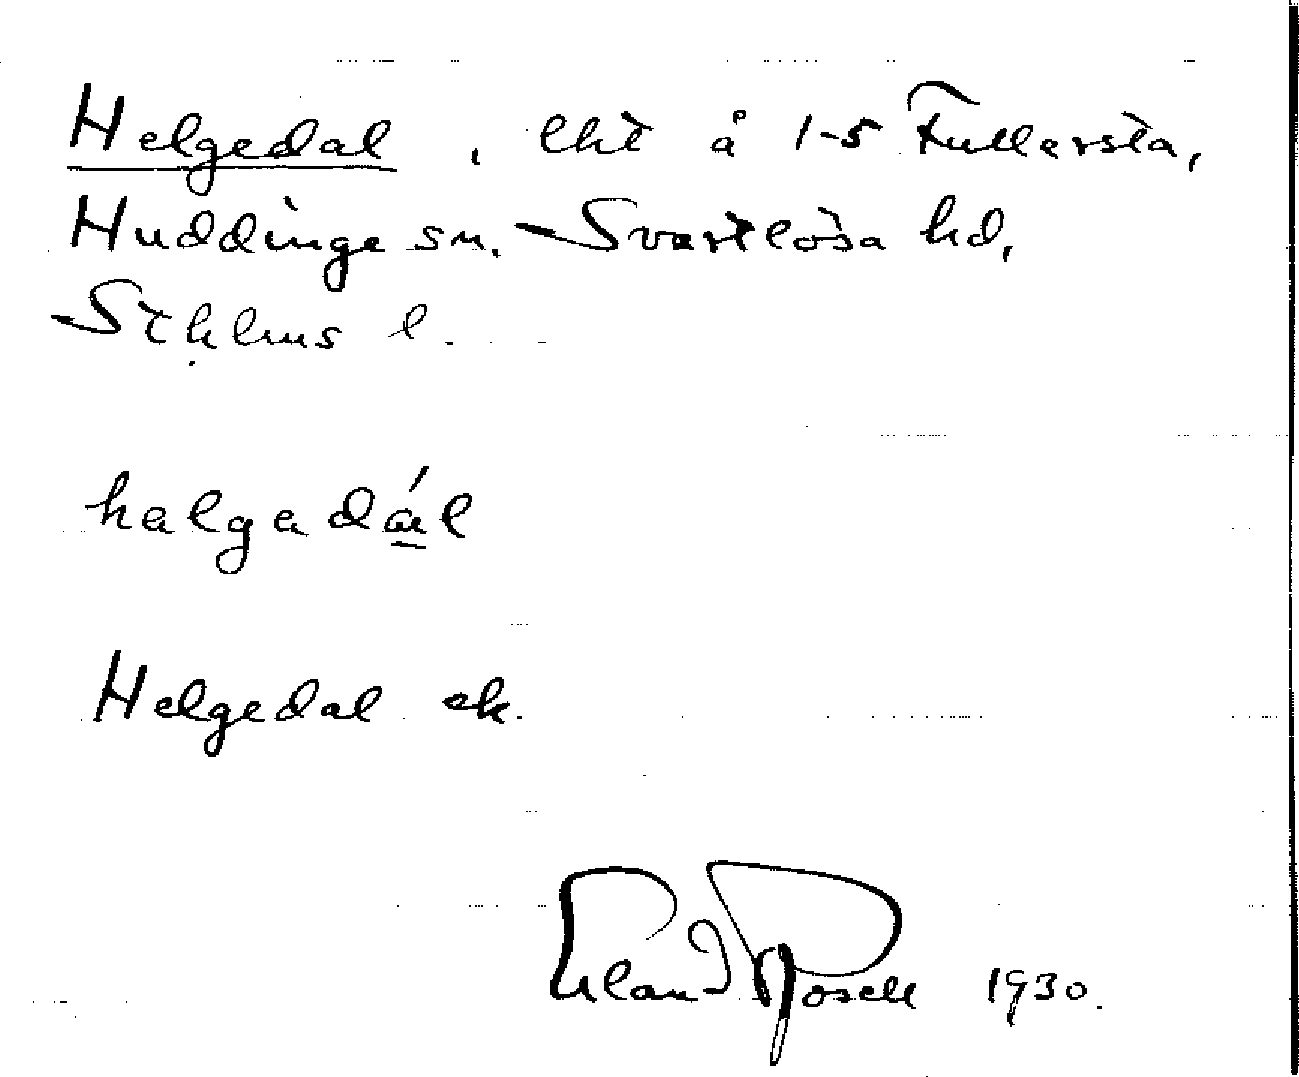 Helgedal, lht å 1-5 Fullersta,
Huddinge sn. Svartlösa hd,
Sthlms l.
halgadál
Helgedal ek.
1930.